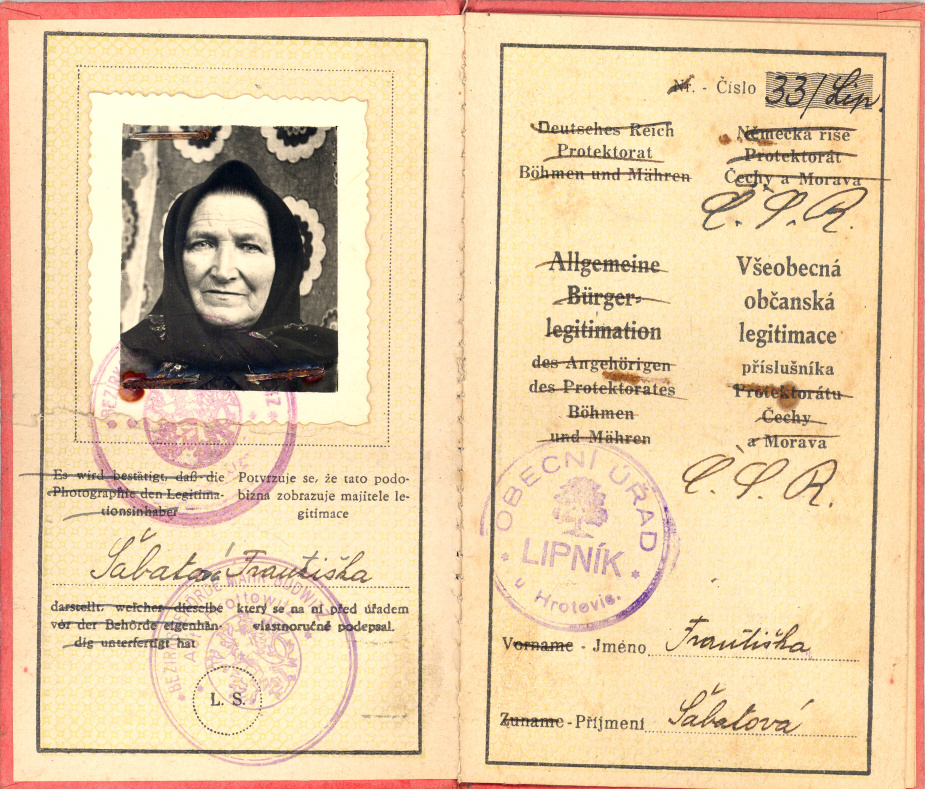 Es wird bestätigt, daß die
Photographie den Legitima-
tionsinhaber
Potvrzuje se, že tato podo-
bizna zobrazuje majitele le-
gitimace
Šabatová Františka
darstellt, welcher dieselbe
vor der Behörde eigenhän-
dig unterfertigt hat
který se na ní před úřadem
vlastnoručně podepsal.
L. S.
Nr. - Číslo 33/Lip.
Deutsches Reich
Protektorat
Böhmen und Mähren
Německá říše
Protektorát
Čechy a Morava
Č. S. R.
Allgemeine
Bürger-
legitimation
des Angehörigen
des Protektorates
Böhmen
und Mähren
Všeobecná
občanská
legitimace
příslušníka
Protektorátu
Čechy
a Morava
Č. S. R.
OBECNÍ ÚŘAD
LIPNÍK
u Hrotovic.
Vorname - Jméno Františka
Zuname - Příjmení Šabatová